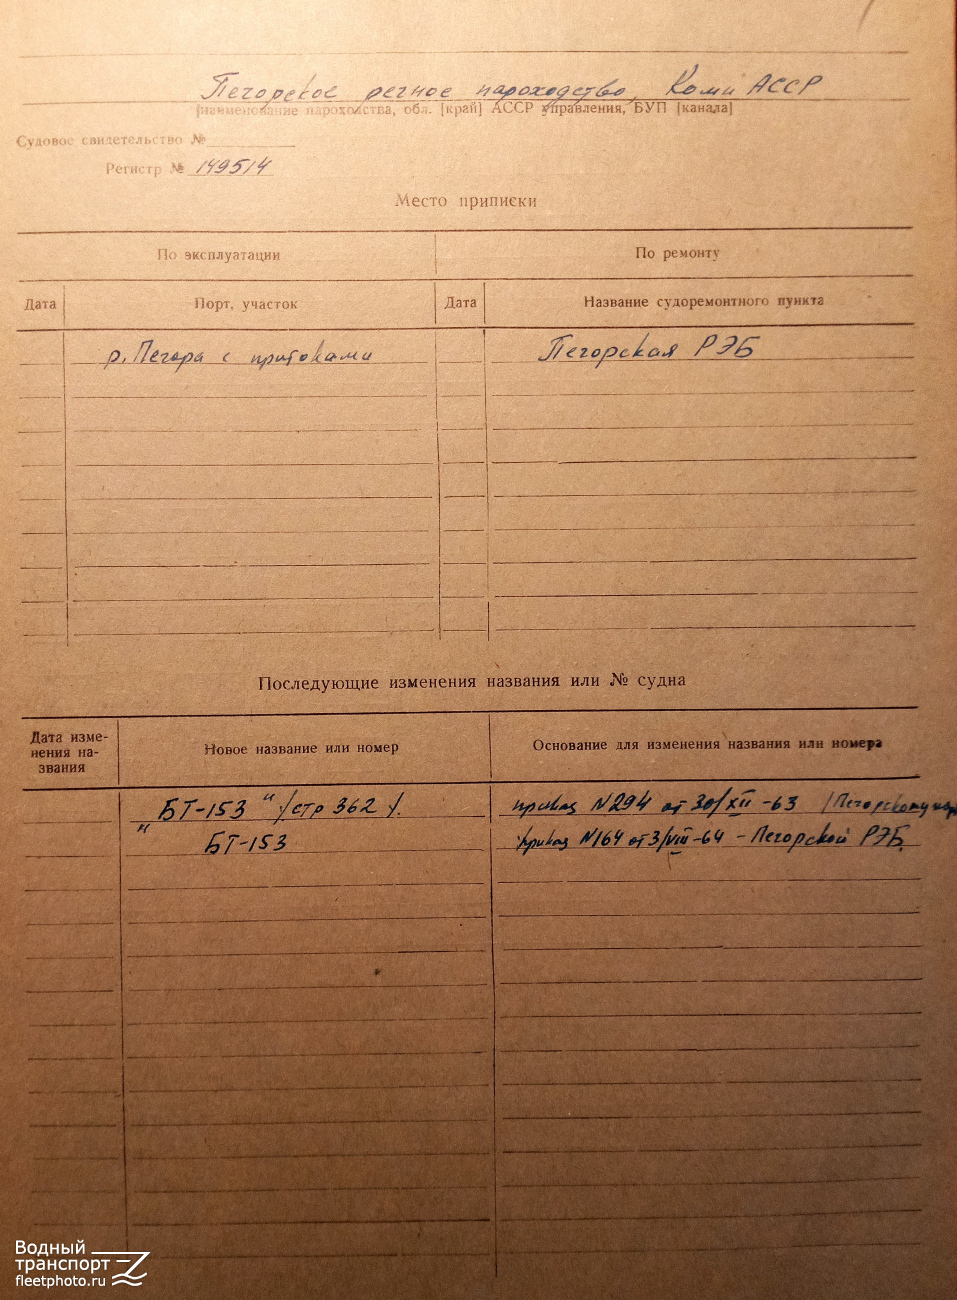 Печорское речное пароходство, Коми АССР
[наименование пароходства, обл. [край] АССР управления, БУП [канала]
Судовое свидетельство №
Регистр № 149514
Место приписки
По эксплуатации По ремонту
Дата Порт, участок Дата Название судоремонтного пункта
р. Печора с притоками Печорская РЭБ
Последующие изменения названия или № судна
Дата изме-
нения на-
звания
Новое название или номер Основание для изменения названия или номера
"БТ-153" /стр 362/. приказ N294 от 30/XII-63 /Печорскому
"БТ-153 приказ N164 от 3/VIII-64 - Печорской РЭБ.
Водный
транспорт
fleetphoto.ru